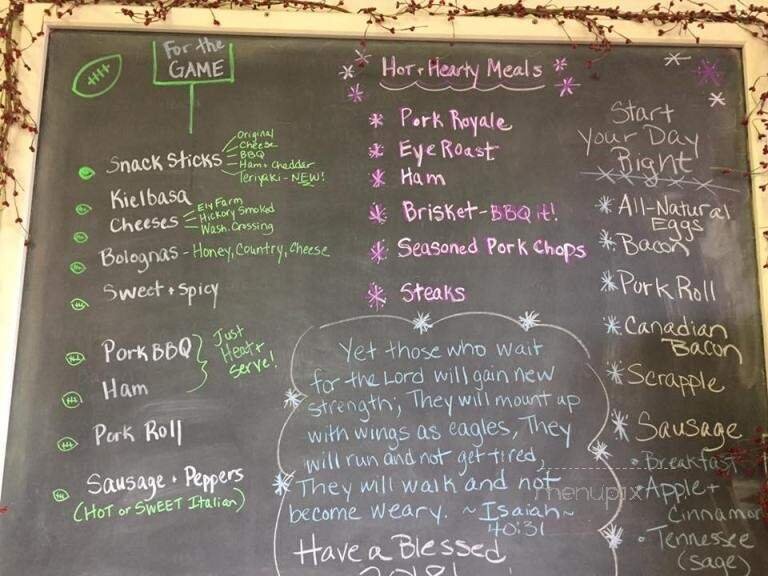 For the
GAME
Snack Sticks
Original
Cheese
BBQ
Ham + Cheddar
Teriyaki - NEW!
Kielbasa
Cheeses
Ely Farm
Hickory Smoked
Wash. Crossing
Bolognas - Honey, Country, Cheese
Sweet + Spicy
Pork BBQ
Ham
Just
Heat +
Serve!
Pork Roll
Sausage + Peppers
(HOT or SWEET Italian)
Hot + Hearty Meals
Pork Royale
Eye Roast
Ham
Brisket - BBQ it!
Seasoned Pork Chops
Steaks
Yet those who wait
for the Lord will gain new
strength; They will mount up
with wings as eagles, They
will run and not get tired,
They will walk and not
become weary. ~Isaiah~
40:31
Have a Blessed
2018!
Start
Your Day
Right
All-Natural
Eggs
Bacon
Pork Roll
Canadian
Bacon
Scrapple
Sausage
• Breakfast
• Apple +
Cinnamon
• Tennessee
(sage)
menupix